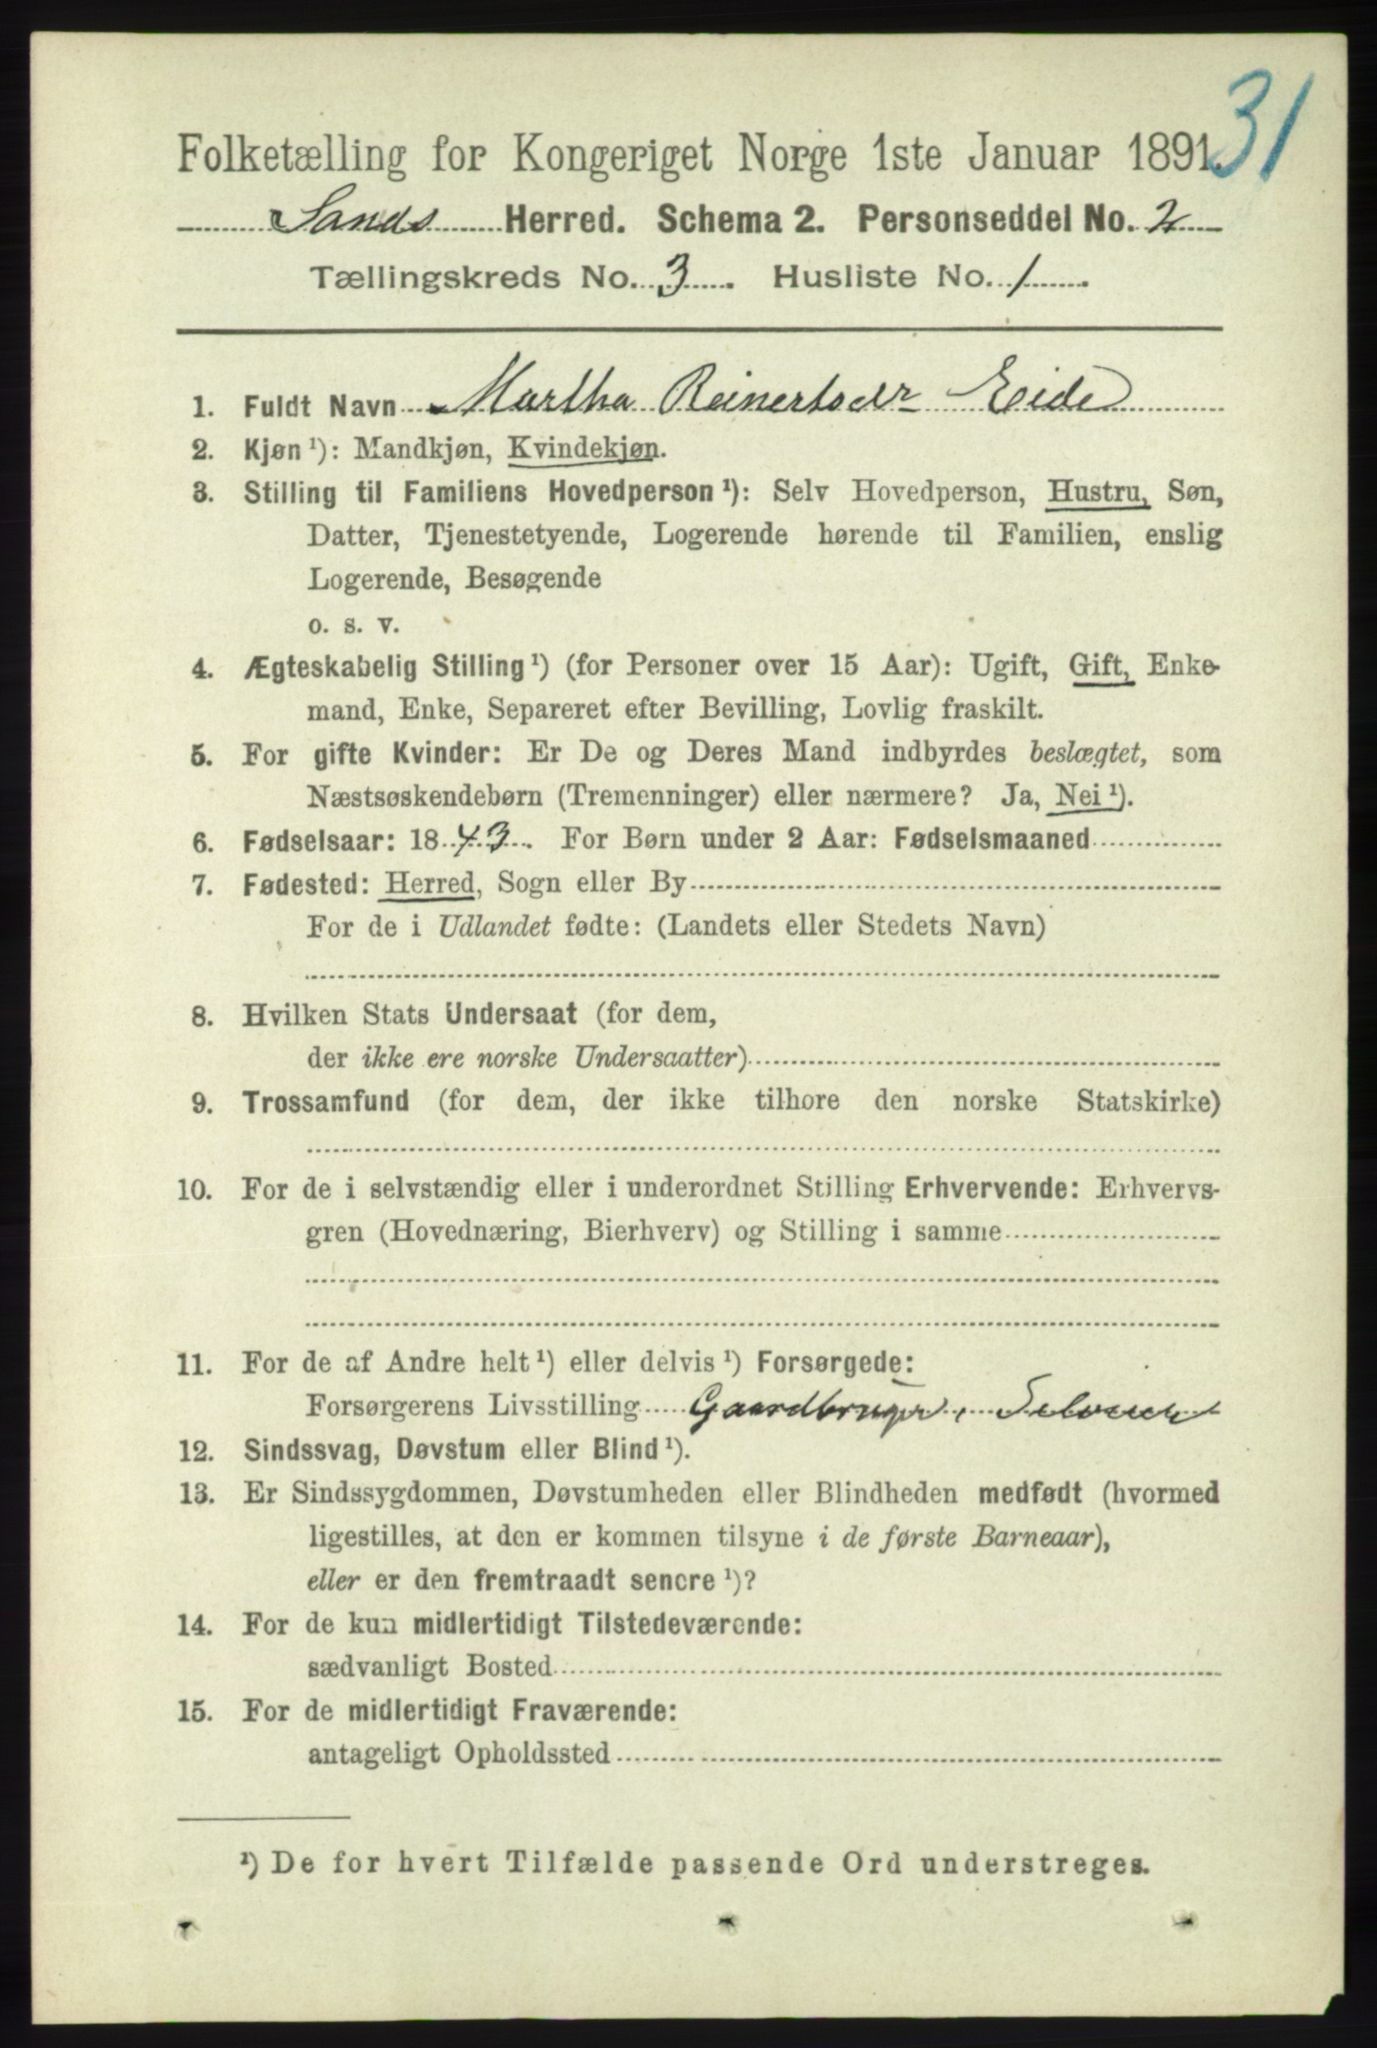 31
Folketælling for Kongeriget Norge 1ste Januar 1891.
Sands Herred. Schema 2. Personseddel No. 2
Tællingskreds No. 3. Husliste No. 1.
1. Fuldt Navn Martha Reinertsdtr Eide
2. Kjøn ¹): Mandkjøn, Kvindekjøn.
3. Stilling til Familiens Hovedperson ¹): Selv Hovedperson, Hustru, Søn,
Datter, Tjenestetyende, Logerende hørende til Familien, enslig
Logerende, Besøgende
o. s. v.
4. Ægteskabelig Stilling ¹) (for Personer over 15 Aar): Ugift, Gift, Enke-
mand, Enke, Separeret efter Bevilling, Lovlig fraskilt.
5. For gifte Kvinder: Er De og Deres Mand indbyrdes beslægtet, som
Næstsøskendebørn (Tremenninger) eller nærmere? Ja, Nei ¹).
6. Fødselsaar: 1843. For Børn under 2 Aar: Fødselsmaaned
7. Fødested: Herred, Sogn eller By
For de i Udlandet fødte: (Landets eller Stedets Navn)
8. Hvilken Stats Undersaat (for dem,
der ikke ere norske Undersaatter)
9. Trossamfund (for dem, der ikke tilhøre den norske Statskirke)
10. For de i selvstændig eller i underordnet Stilling Erhvervende: Erhvervs-
gren (Hovednæring, Bierhverv) og Stilling i samme
11. For de af Andre helt ¹) eller delvis ¹) Forsørgede:
Forsørgerens Livsstilling Gaardbruger, Selveier
12. Sindssvag, Døvstum eller Blind ¹).
13. Er Sindssygdommen, Døvstumheden eller Blindheden medfødt (hvormed
ligestilles, at den er kommen tilsyne i de første Barneaar),
eller er den fremtraadt senere ¹)?
14. For de kun midlertidigt Tilstedeværende:
sædvanligt Bosted
15. For de midlertidigt Fraværende:
antageligt Opholdssted
¹) De for hvert Tilfælde passende Ord understreges.